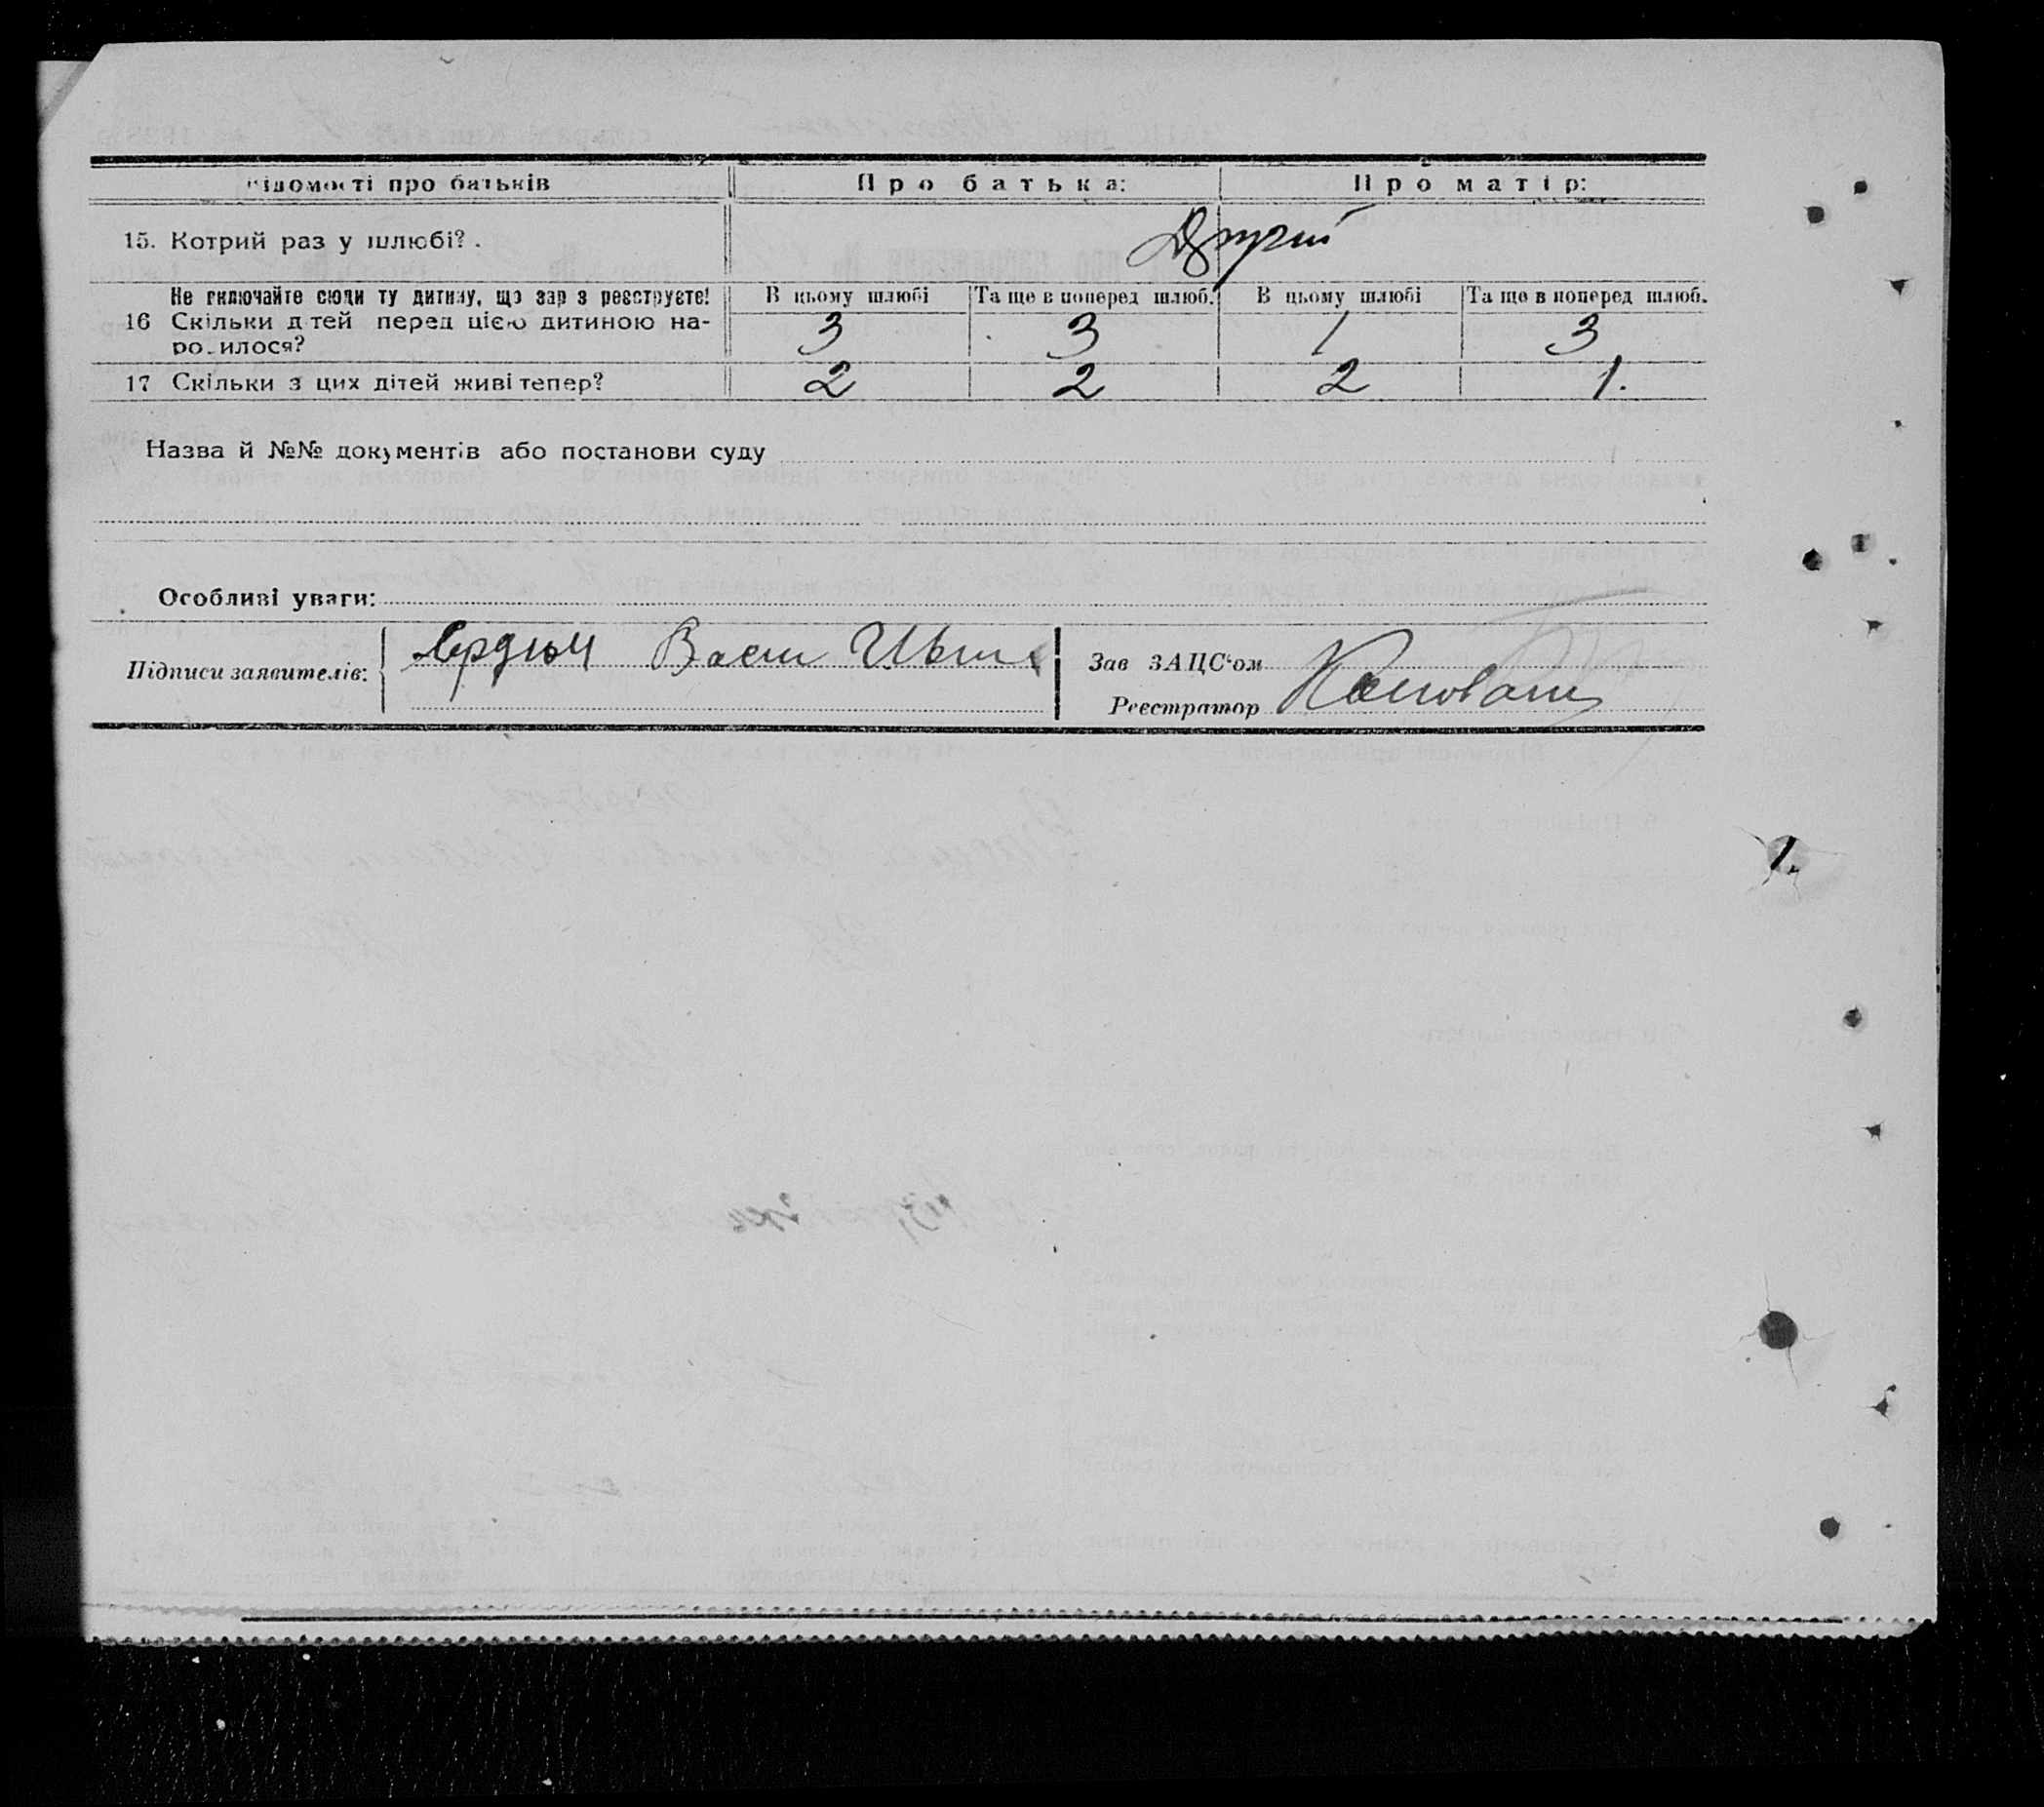 відомості про батьків Про батька: Про матір:
15. Котрий раз у шлюбі? . Другий
Не включайте сюди ту дитину, що зар з реєструєте! В цьому шлюбі Та ще в поперед шлюб. В цьому шлюбі Та ще в поперед шлюб.
16 Скільки дітей перед цією дитиною на- 3 3 1 3
ро.илося?
17 Скільки з цих дітей живі тепер? 2 2 2 1.
Назва й №№ документів або постанови суду
Особливі уваги:
Підписи заявителів: Зав ЗАЦС‘ом
Реєстратор
1.